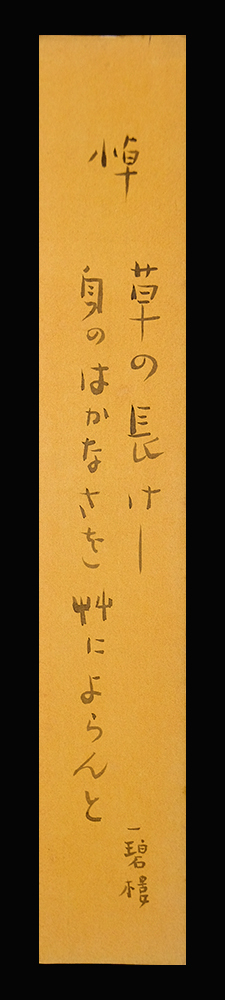 悼
草の長けし
身のはかなさを艸によらんと
一碧樓